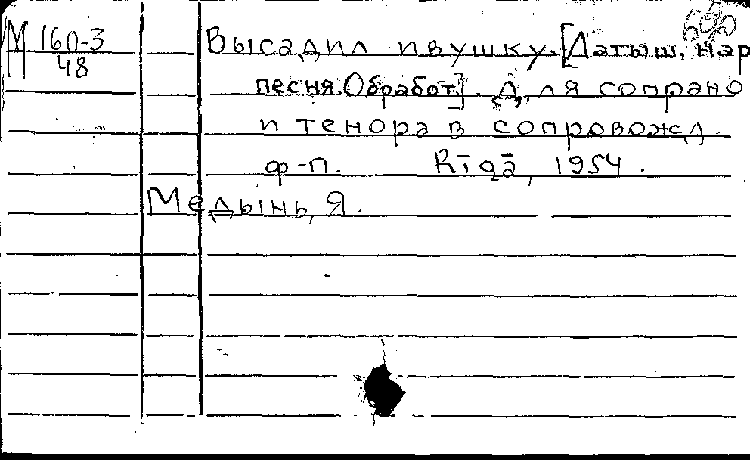 М 160-3
48
Высадил ивушку. [Латыш. нар
песня. Обработ.]. Для сопрано
и тенора в сопровожд.
ф-п. Rīgā, 1954.
Медынь, Я.